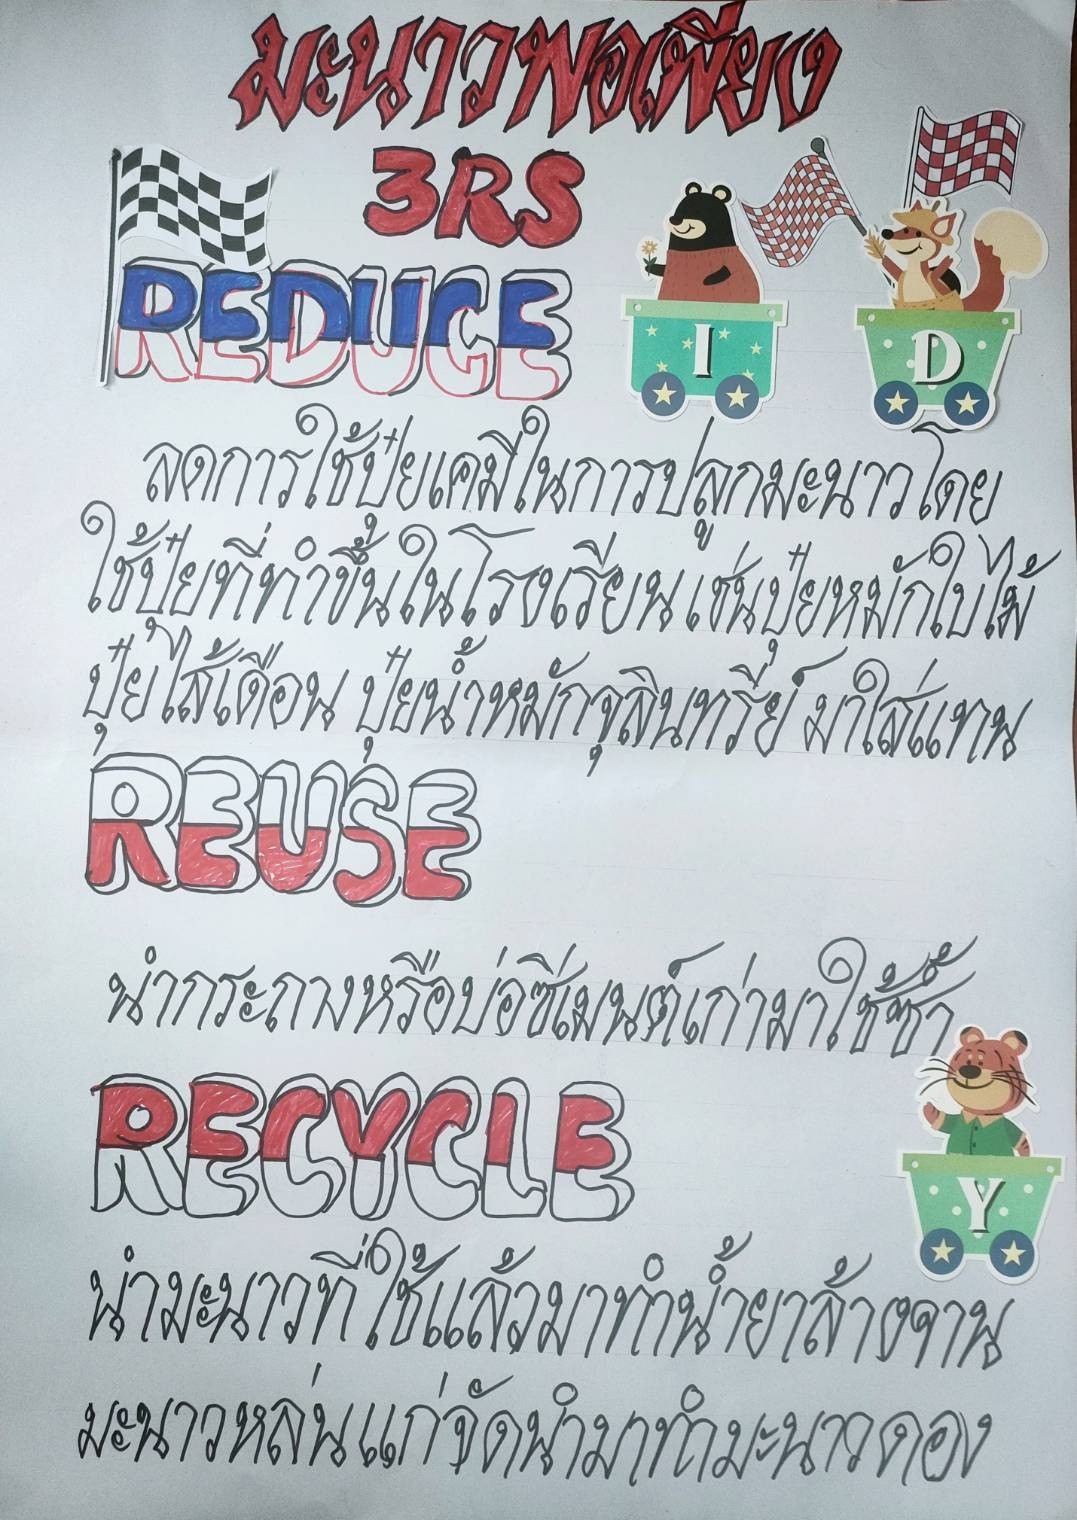 มะนาวพอเพียง
3RS
REDUCE
I
D
ลดการใช้ปุ๋ยเคมีในการปลูกมะนาวโดย
ใช้ปุ๋ยที่ทำขึ้นในโรงเรียน เช่นปุ๋ยหมักใบไม้
ปุ๋ยไส้เดือน ปุ๋ยน้ำหมักจุลินทรีย์ มาใส่แทน
REUSE
นำกระถางหรือบ่อซีเมนต์เก่ามาใช้ซ้ำ
RECYCLE
Y
นำมะนาวที่ใช้แล้วมาทำน้ำยาล้างจาน
มะนาวหล่นแก่จัดนำมาทำมะนาวดอง